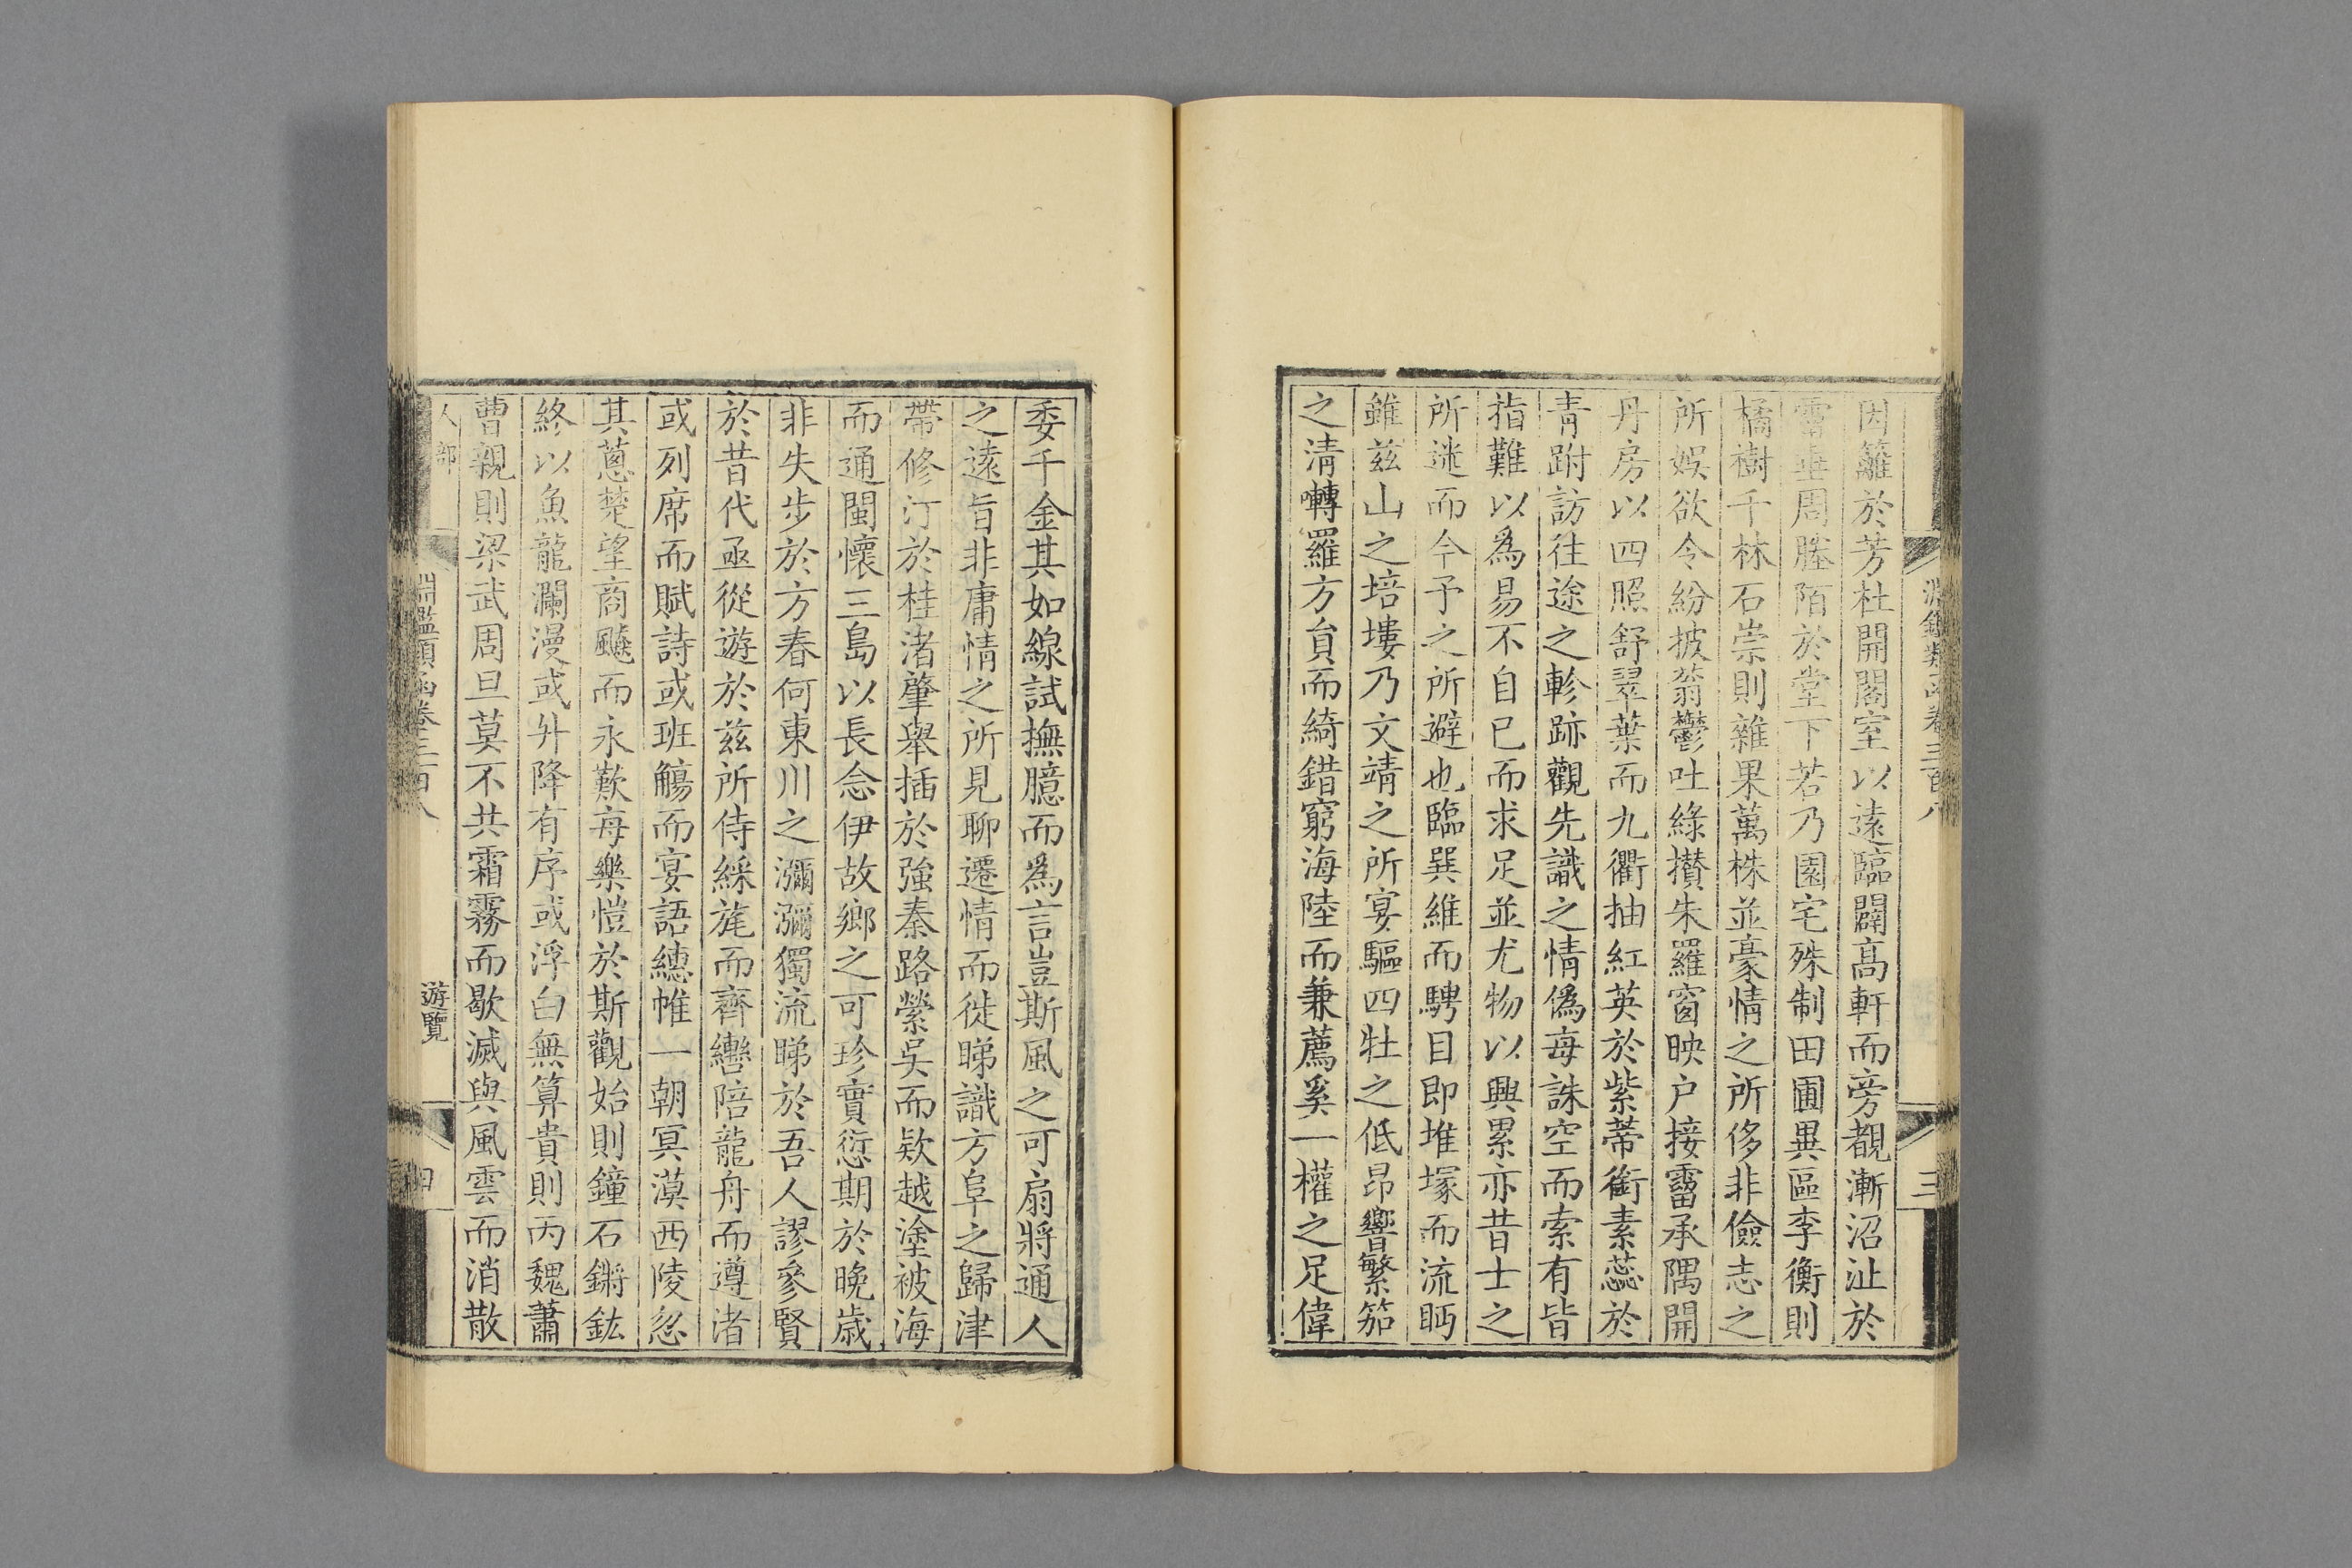 因籬於芳杜開閣室以遠臨闢高軒而旁覩漸沼沚於
雷垂周塍陌於堂下若乃園宅殊制田圃異區李衡則
橘樹千林石崇則雜果萬株並豪情之所侈非儉志之
所娛欲令紛披蓊鬱吐綠攅朱羅窗映户接霤承隅開
丹房以四照舒翠葉而九衢抽紅英於紫蒂銜素蕊於
青跗訪往途之軫跡觀先識之情僞每誅空而索有皆
指難以爲易不自已而求足並尤物以興累亦昔士之
所迷而今予之所避也臨巽維而騁目即堆塚而流眄
雖茲山之培塿乃文靖之所宴驅四牡之低昂響繁笳
之清囀羅方員而綺錯窮海陸而兼薦奚一權之足偉
委千金其如線試撫臆而爲言豈斯風之可扇將通人
之遠旨非庸情之所見聊遷情而徙睇識方阜之歸津
帶修汀於桂渚肇舉插於強秦路縈吳而欵越塗被海
而通閩懷三島以長念伊故鄉之可珍實愆期於晚歲
非失步於方春何東川之瀰瀰獨流睇於吾人謬參賢
於昔代亟從遊於茲所侍綵旄而齊轡陪龍舟而遵渚
或列席而賦詩或班觴而宴語繐帷一朝冥漠西陵忽
其蔥楚望商飈而永歎每樂愷於斯觀始則鐘石鏘鈜
終以魚龍瀾漫或升降有序或浮白無算貴則丙魏蕭
曹親則梁武周旦莫不共霜霧而歇滅與風雲而消散
人部
淵鑑類函卷三百八
遊覽
四